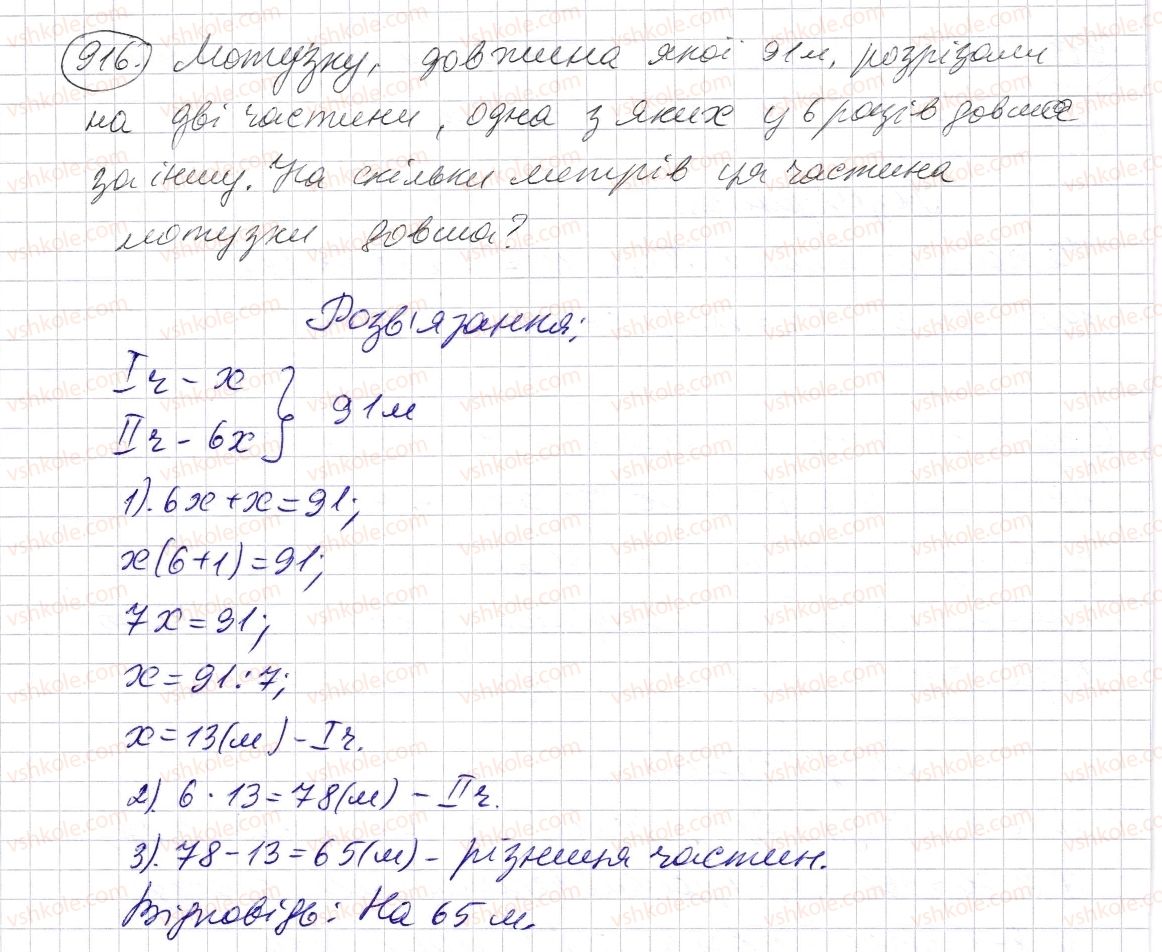 916. Мотузку, довжина якої 91м, розрізали
на дві частини, одна з яких у 6 разів довша
за іншу. На скільки метрів ця частина
мотузки довша?
Розв'язання;
I ч - x
II ч - 6x } 91м
1). 6x + x = 91;
x(6+1) = 91;
7x = 91;
x = 91:7;
x = 13(м) - I ч.
2). 6 · 13 = 78(м) - II ч.
3). 78 - 13 = 65(м) - різниця частин.
Відповідь: На 65 м.